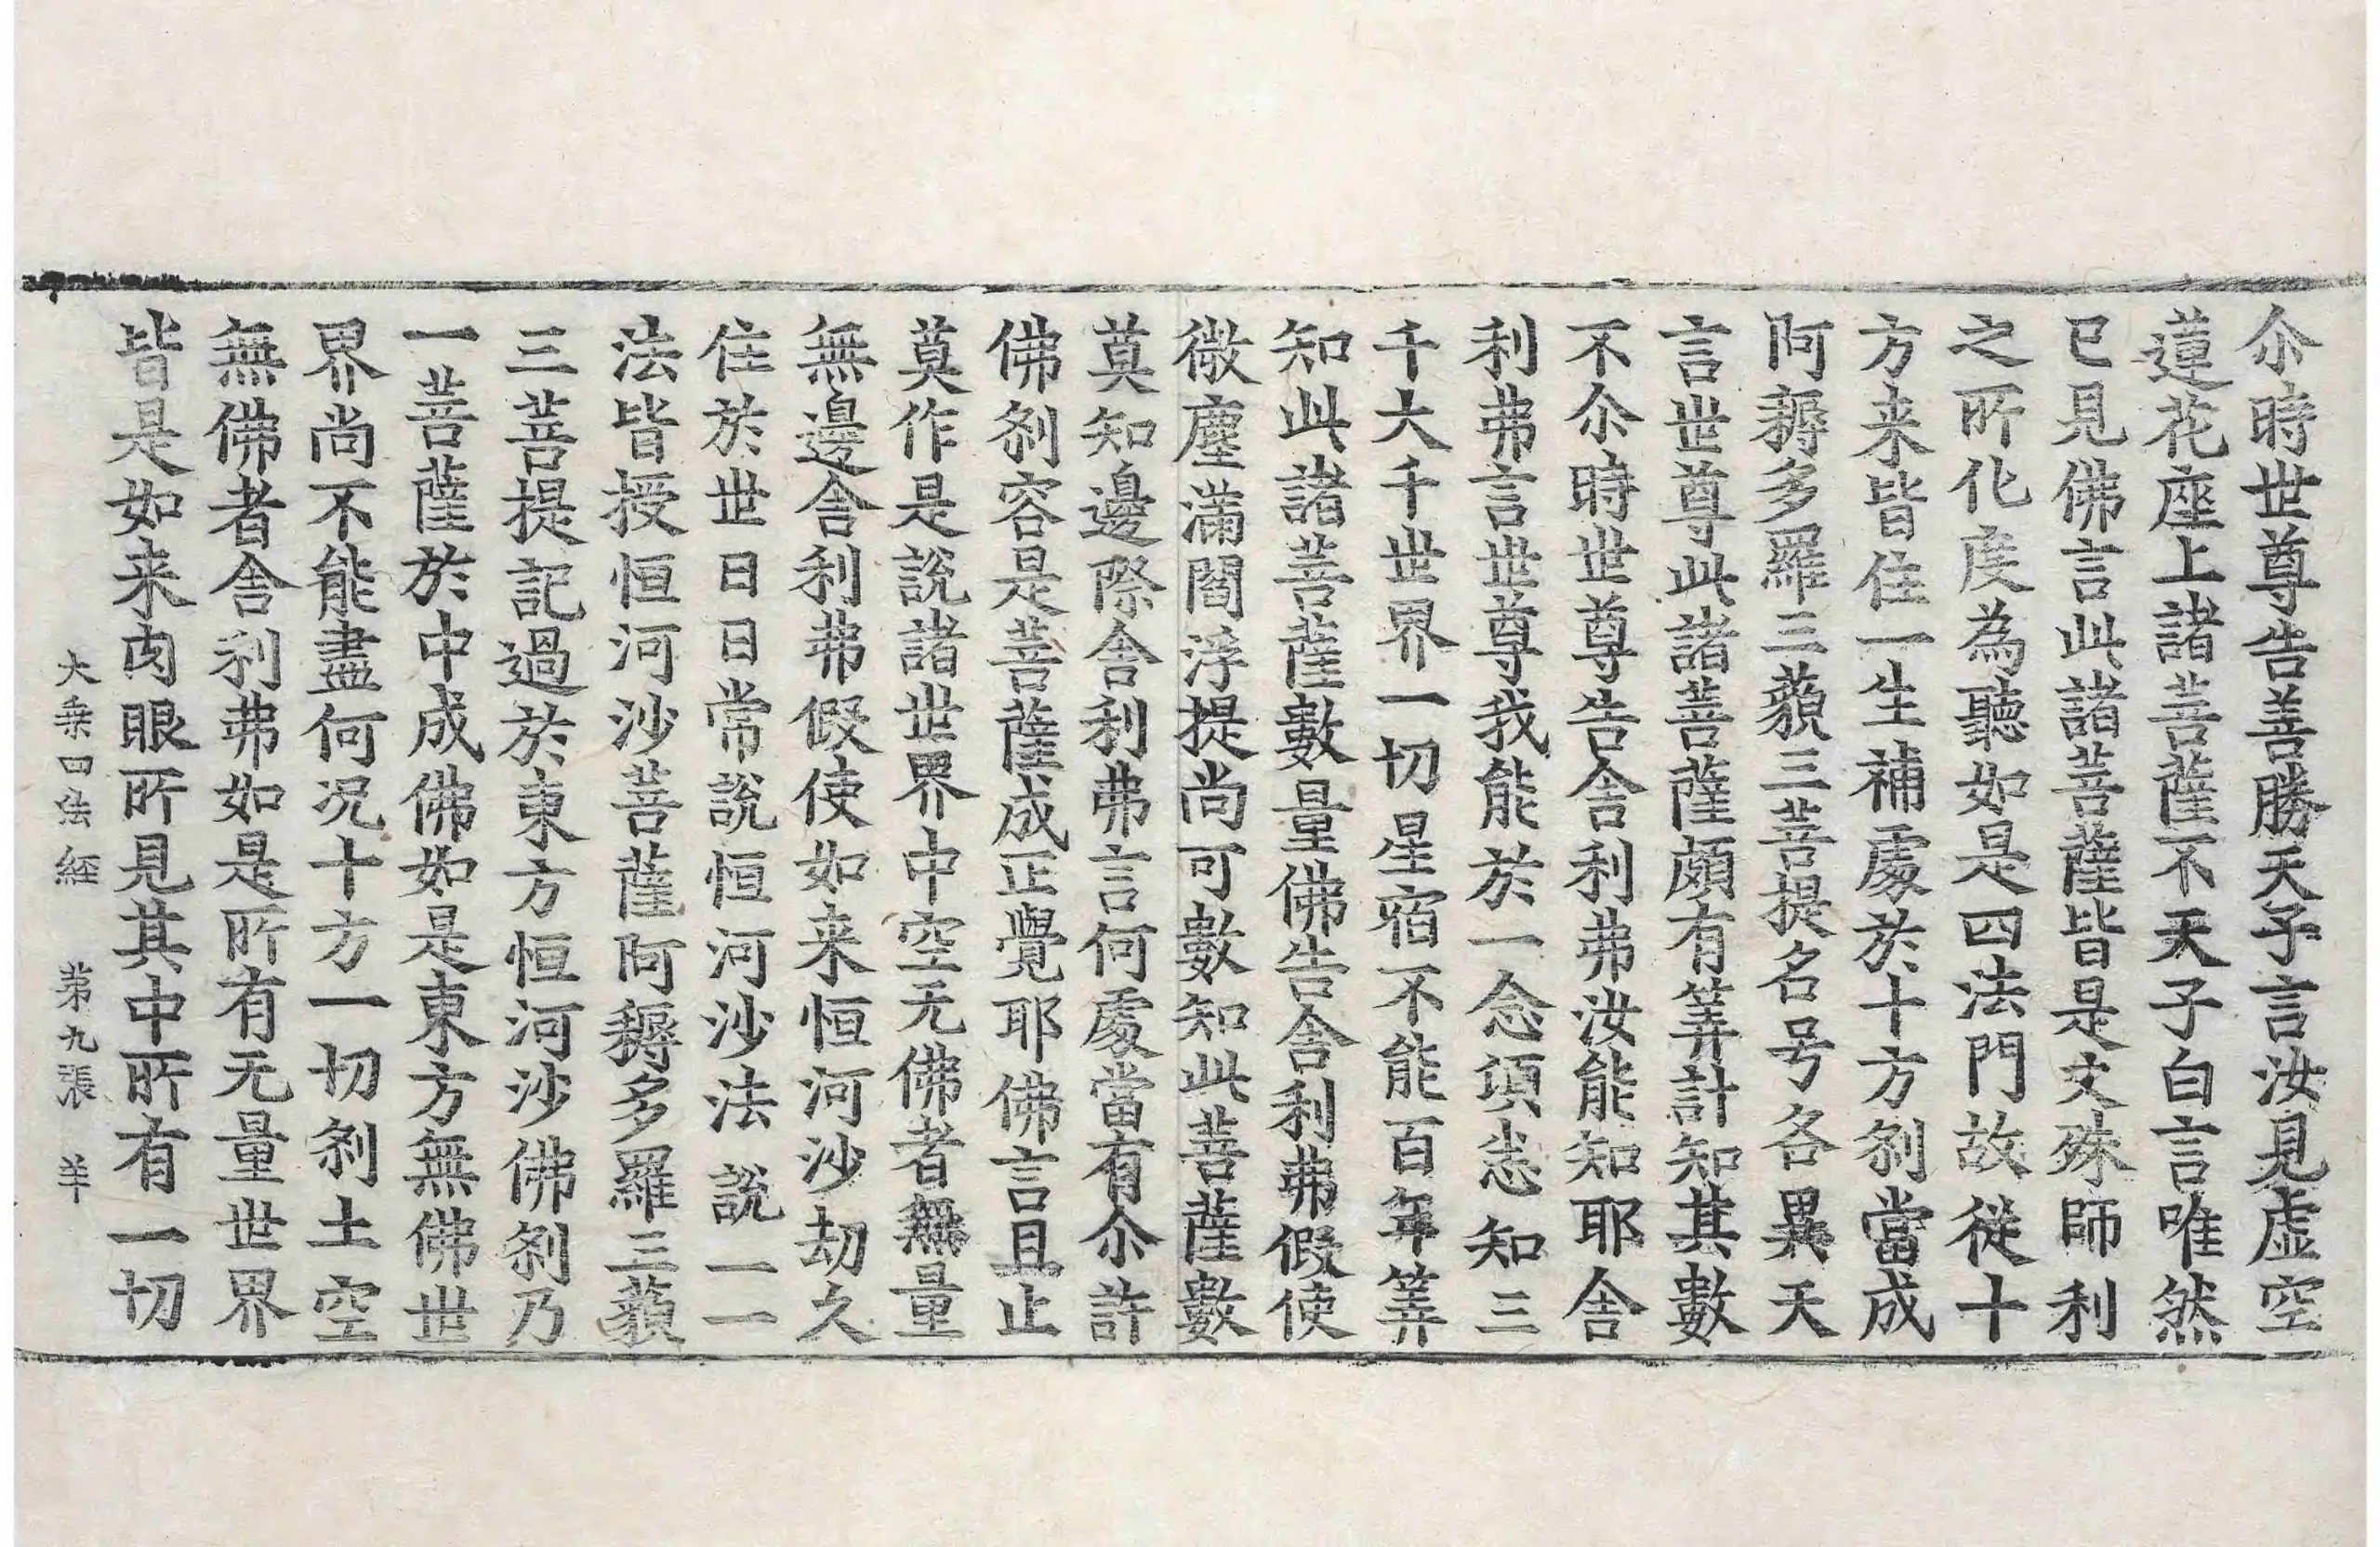 尒時世尊告善勝天子言汝見虚空
蓮花座上諸菩薩不天子白言唯然
已見佛言此諸菩薩皆是文殊師利
之所化度為聽如是四法門故從十
方来皆住一生補處於十方刹當成
阿耨多羅三藐三菩提名号各異天
言世尊此諸菩薩頗有筭計知其數
不尒時世尊告舎利弗汝能知耶舎
利弗言世尊我能於一念須悉知三
千大千世界一切星宿不能百年筭
知此諸菩薩數量佛告舎利弗假使
微塵滿閻浮提尚可數知此菩薩數
莫知邊際舎利弗言何處當有尒許
佛刹容是菩薩成正覺耶佛言且止
莫作是說諸世界中空无佛者無量
無邊舎利弗假使如来恒河沙劫久
住於世日日常說恒河沙法說一一
法皆授恒河沙菩薩阿耨多羅三藐
三菩提記過於東方恒河沙佛刹乃
一菩薩於中成佛如是東方無佛世
界尚不能盡何况十方一切刹土空
無佛者舎利弗如是所有无量世界
皆是如来肉眼所見其中所有一切
大乗四法經　第九張　羊